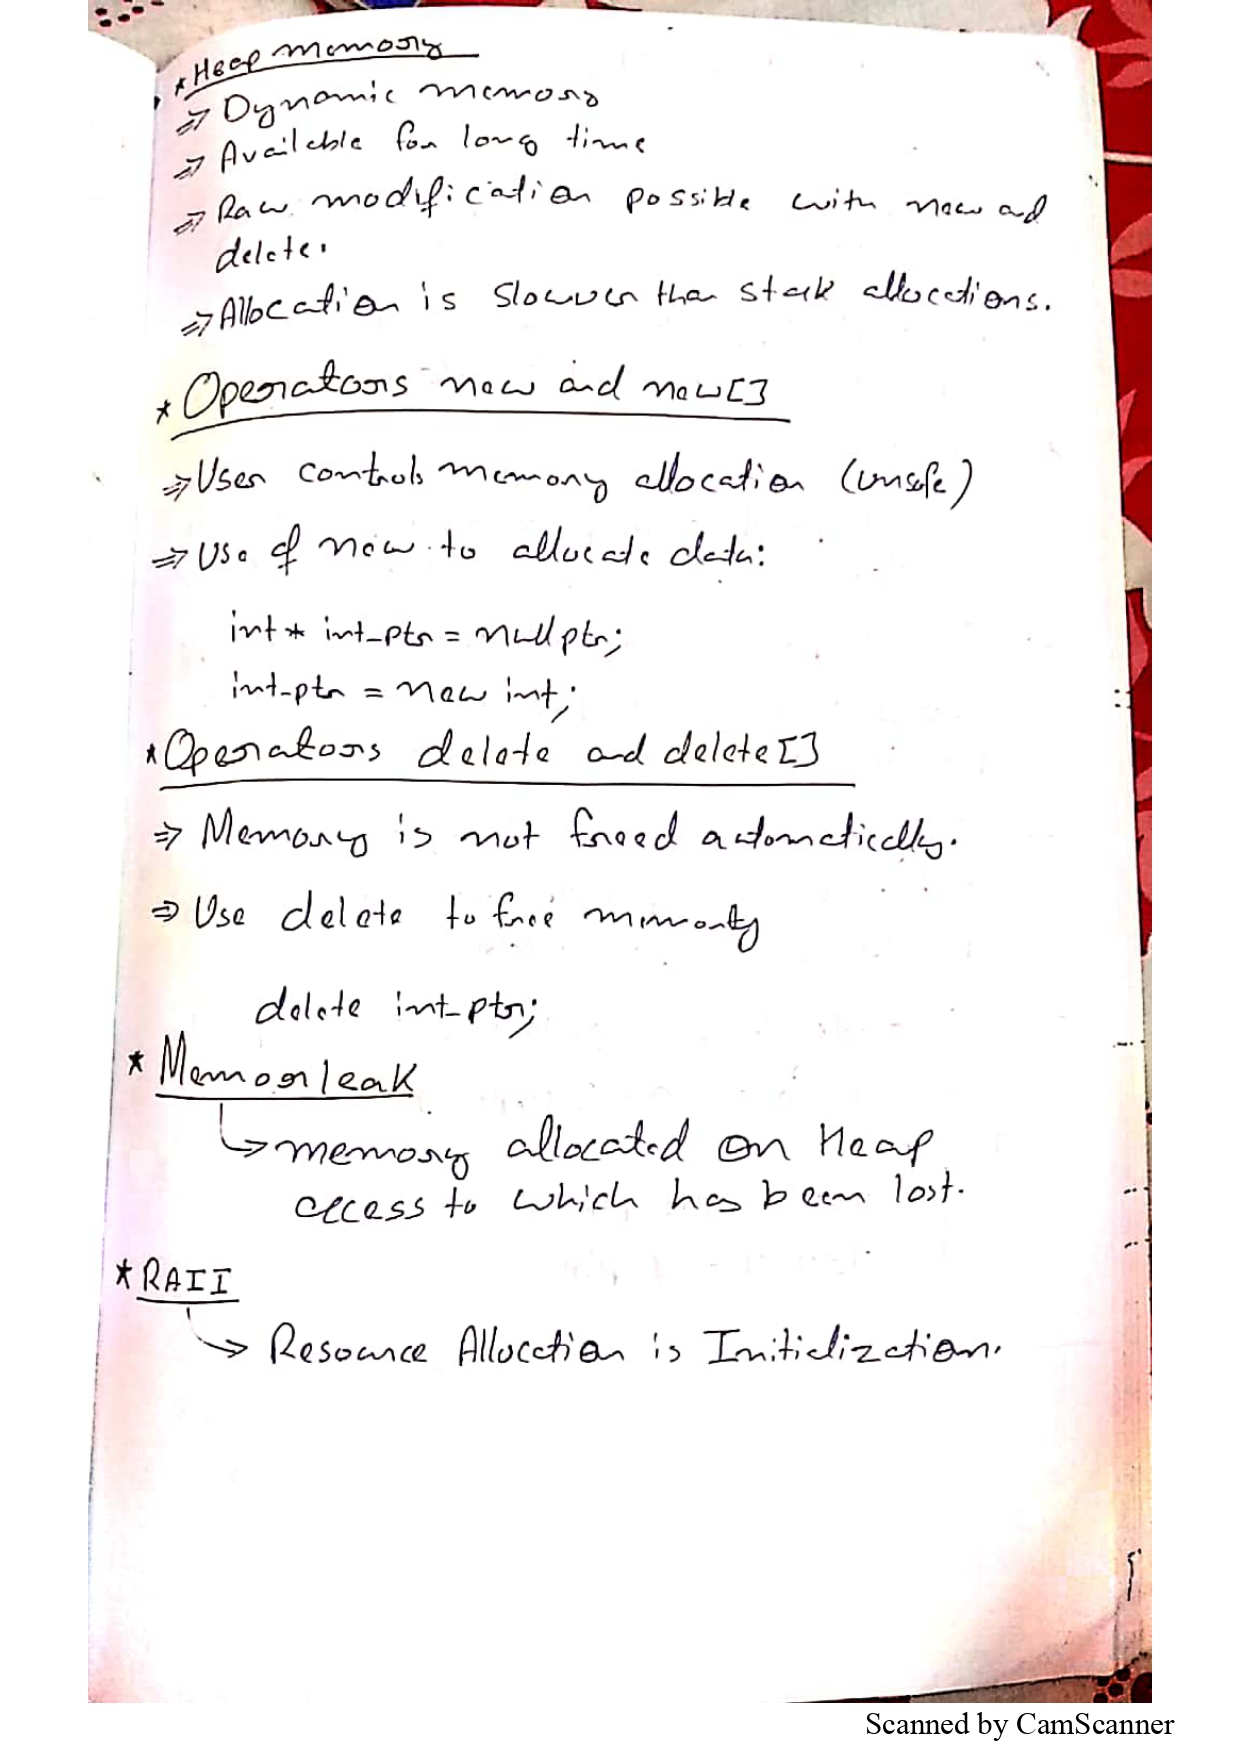 * Heap memory
⇒ Dynamic memory
⇒ Available for long time
⇒ Raw modification possible with new and
delete.
⇒ Allocation is slower than stack allocations.
* Operators new and new[]
⇒ User controls memory allocation (unsafe)
⇒ Use of new to allocate data:
int * int_ptr = nullptr;
int_ptr = new int;
* Operators delete and delete[]
⇒ Memory is not freed automatically.
⇒ Use delete to free mimorty
delete int_ptr;
* Memor leak
↳ memory allocated on Heap
access to which has been lost.
* RAII
↳ Resource Allocation is Initialization.
Scanned by CamScanner